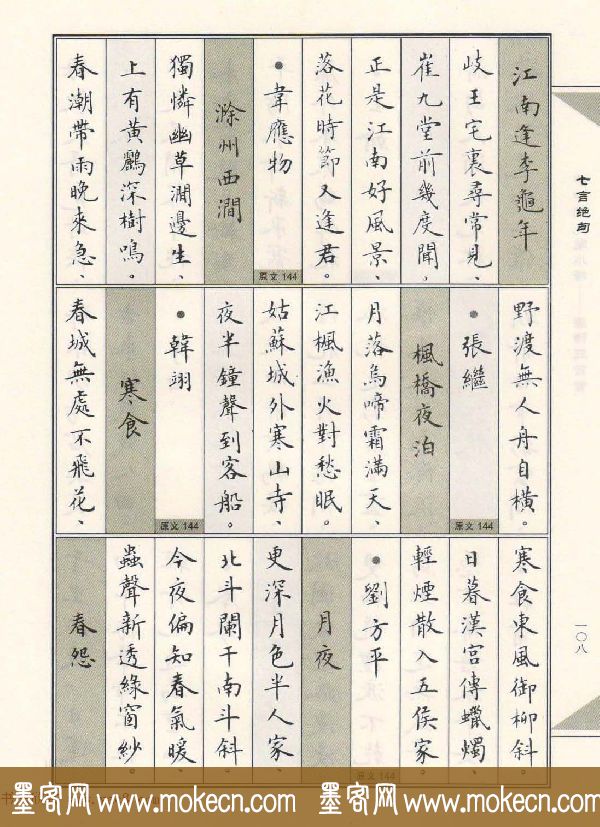 江南逢李龜年
岐王宅裏尋常見、
崔九堂前幾度聞、
正是江南好風景、
落花時節又逢君。
•韋應物
原文 144
滁州西澗
獨憐幽草澗邊生、
上有黃鸝深樹鳴。
春潮帶雨晚來急、
野渡無人舟自橫。
•張繼
原文 144
楓橋夜泊
月落烏啼霜滿天、
江楓漁火對愁眠。
姑蘇城外寒山寺、
夜半鐘聲到客船。
•韓翃
原文 144
寒食
春城無處不飛花、
寒食東風御柳斜。
日暮漢宮傳蠟燭、
輕煙散入五侯家。
•劉方平
原文 144
月夜
更深月色半人家、
北斗闌干南斗斜。
今夜偏知春氣暖、
蟲聲新透綠窗紗。
春怨
七言绝句
一〇八
墨客网 www.mokecn.com 墨客网 www.mokecn.com